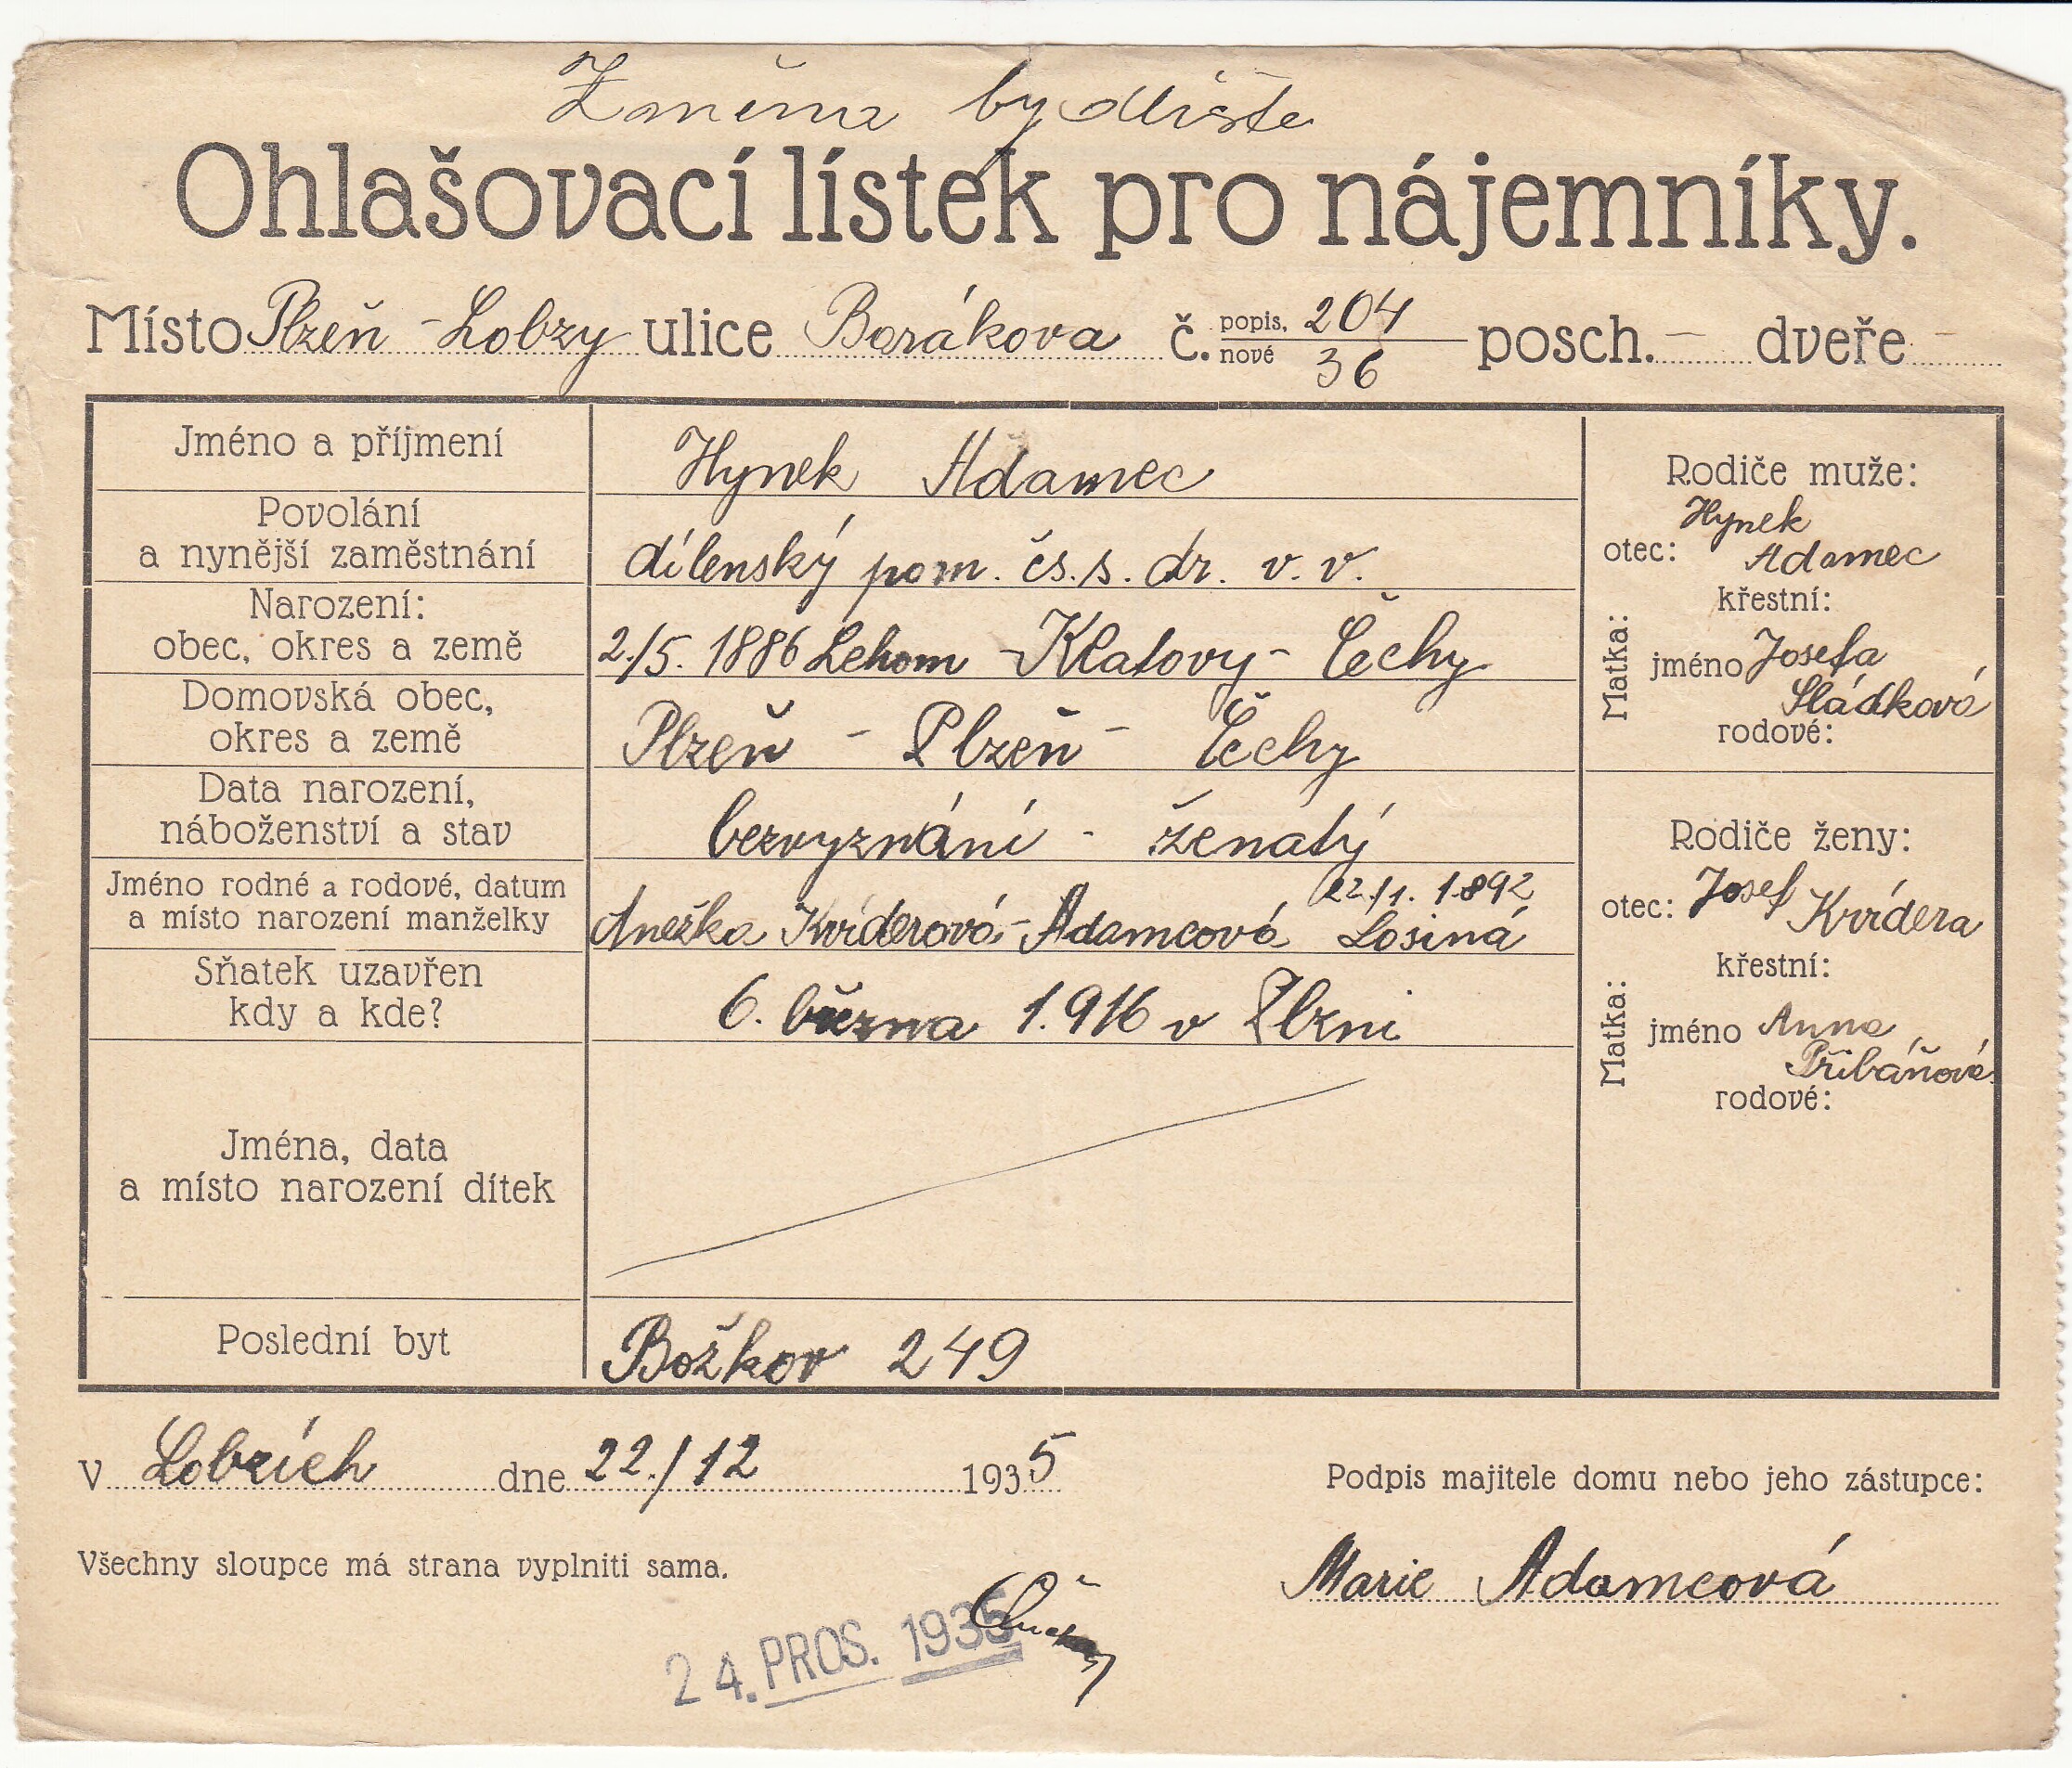 Změna bydliště
Ohlašovací lístek pro nájemníky.
Místo Plzeň - Lobzy ulice Borákova č. popis. 204 posch. - dveře -
nové 36
Jméno a příjmení Hynek Adamec
Povolání
a nynější zaměstnání dílenský pom. čs. s. dr. v. v.
Narození:
obec, okres a země 2./5. 1886 Lehom - Klatovy - Čechy
Domovská obec,
okres a země Plzeň - Plzeň - Čechy
Data narození,
náboženství a stav bezvyznání - ženatý
Jméno rodné a rodové, datum 22./1. 1892
a místo narození manželky Anežka Kvíderová - Adamcová Losiná
Sňatek uzavřen
kdy a kde? 6. března 1.916 v Plzni
Jména, data
a místo narození dítek
Poslední byt Božkov 249
Rodiče muže:
Hynek
otec: Adamec
křestní:
Matka:
jméno Josefa
Sládková
rodové:
Rodiče ženy:
otec: Josef Kvídera
křestní:
Matka:
jméno Anna
Přibáňová
rodové:
V Lobzích dne 22./12 1935
Podpis majitele domu nebo jeho zástupce:
Všechny sloupce má strana vyplniti sama.
Marie Adamcová
24. PROS. 1935